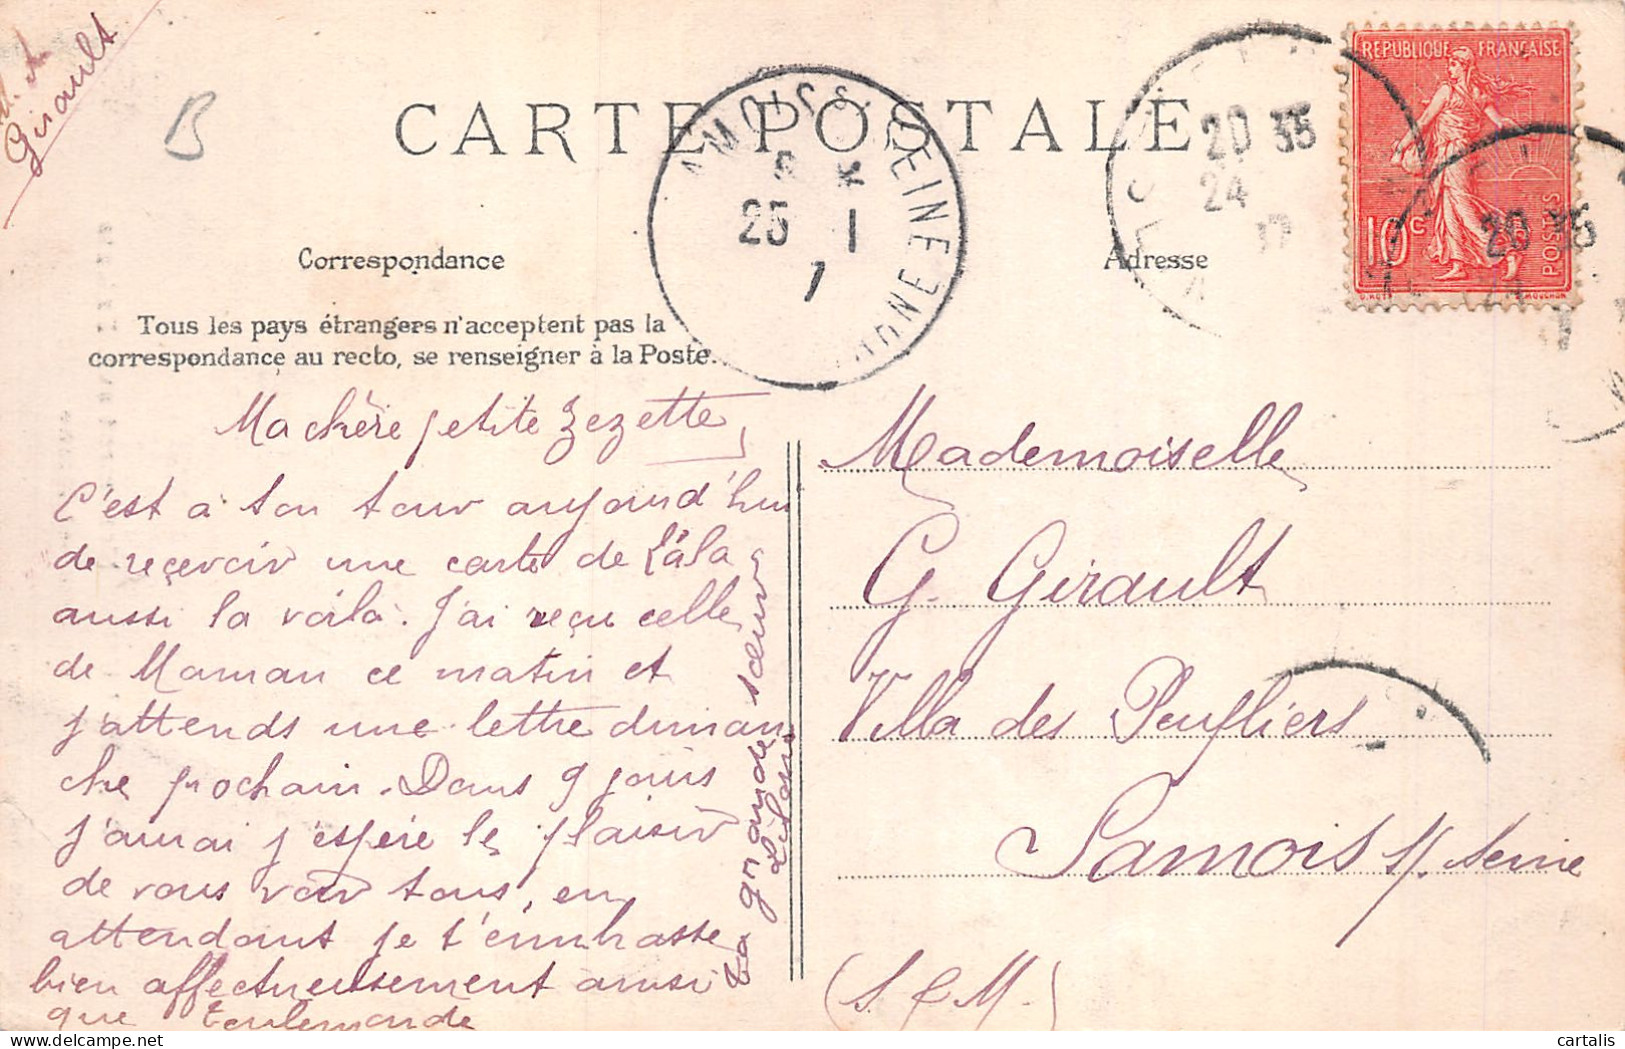 Girault
B
CARTE POSTALE
REPUBLIQUE FRANÇAISE
10c
POSTES
20 35
24
20 35
24
25 1
7
Correspondance
Adresse
Tous les pays étrangers n'acceptent pas la
correspondance au recto, se renseigner à la Poste.
Ma chère petite Zezette,
C'est a ton tour aujourd'hui
de reçevoir une carte de
aussi la voilà. J'ai reçu celle
de Maman ce matin et
j'attends une lettre diman
che prochain. Dans 9 jours
j'aurai j'espère le plaisir
de vous voir tous, en
attendant je t'embrasse
bien affectueusement ainsi
que toulemonde
ta grande soeur
Mademoiselle
G. Girault
Villa des Peupliers
Samois s/ Seine
(S. & M.)
cartalis